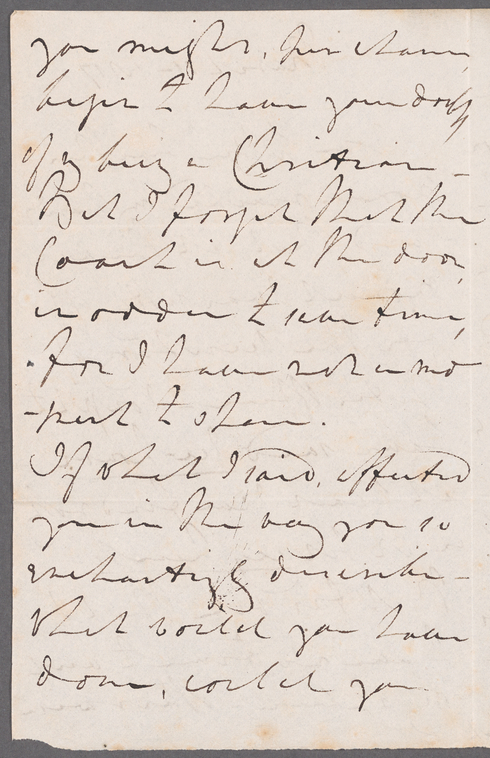 you might, perchance,
begin to have your doubts
of my being a Christian -
But I forget that the
Coach is at the door,
in order to save time,
for I have not a mo
-ment to spare.
If what I said, affected
you in the way you so
enchantingly describe -
What would you have
done, could you